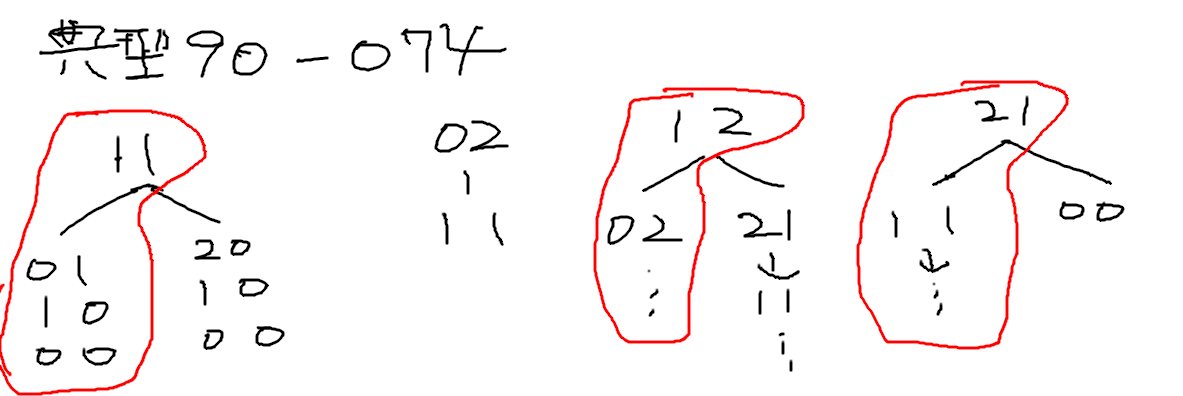 典型90-074
11
01
10
00
20
10
00
02
11
12
02
21
11
21
11
00